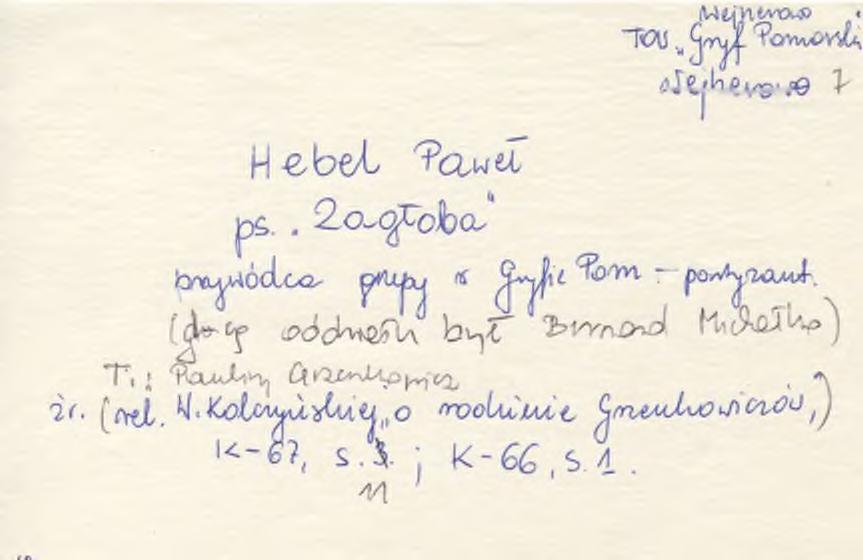 Wejherowo
TOW „Gryf Pomorski
Wejherowo 7
Hebel Paweł
ps. „Zagłoba"
przywódca grupy w Gryfie Pom - partyzant.
(d-cą oddziału był Bernard Michałko)
T.: Pauliny
źr. (rel. W. Kolczyńskiej „o rodzinie Grzenkowiczów,)
K-67, s. ; K-66, s.1.
11